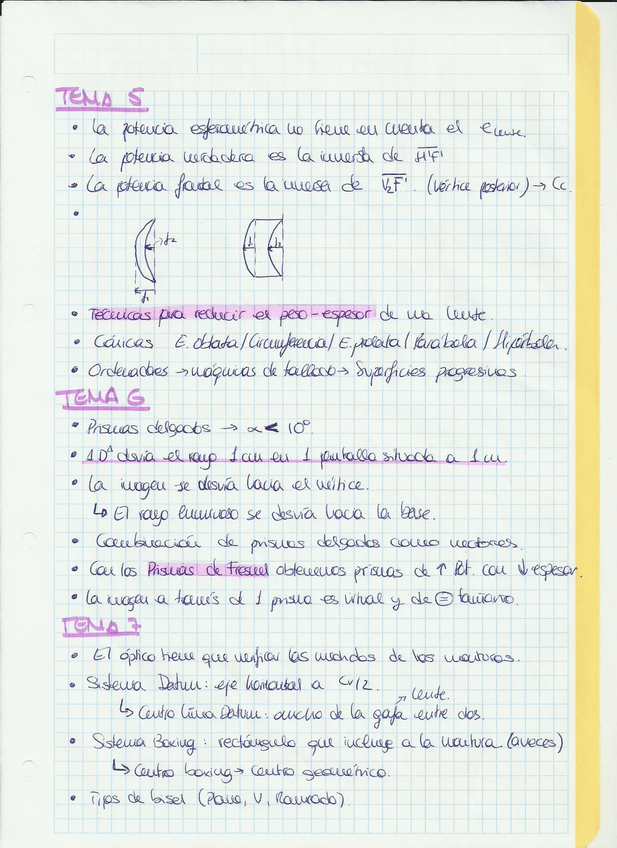 TEMA 5
• La potencia esferométrica no tiene en cuenta el e lente.
• La potencia verdadera es la inversa de H'F'
• La potencia frontal es la inversa de V₂F'. (vértice posterior) → Cc.
•
f₂ f₁
• Técnicas para reducir el peso-espesor de una lente.
• Cónicas E. oblata/Circunferencia/E. prolata/Parábola/Hipérbola.
• Ordenadores → máquinas de tallado → Superficies progresivas
TEMA 6
• Prismas delgados → α < 10º
• 1 D^Δ desvía el rayo 1 cm en 1 pantalla situada a 1 m.
• La imagen se desvía hacia el vértice.
↳ El rayo luminoso se desvía hacia la base.
• Combinación de prismas delgados como vectores.
• Con los Prismas de Fresnel obtenemos prismas de ↑ Pot. con ↓ espesor.
• La imagen a través de 1 prisma es virtual y de = tamaño.
TEMA 7
• El óptico tiene que verificar las medidas de las monturas.
• Sistema Datum: eje horizontal a Cv/2.
↗ lente.
↳ Centro línea Datum: ancho de la gafa entre dos.
• Sistema Boxing: rectángulo que incluye a la montura. (aveces)
↳ Centro boxing → centro geométrico.
• Tipos de bisel (Plano, V, Ranurado)